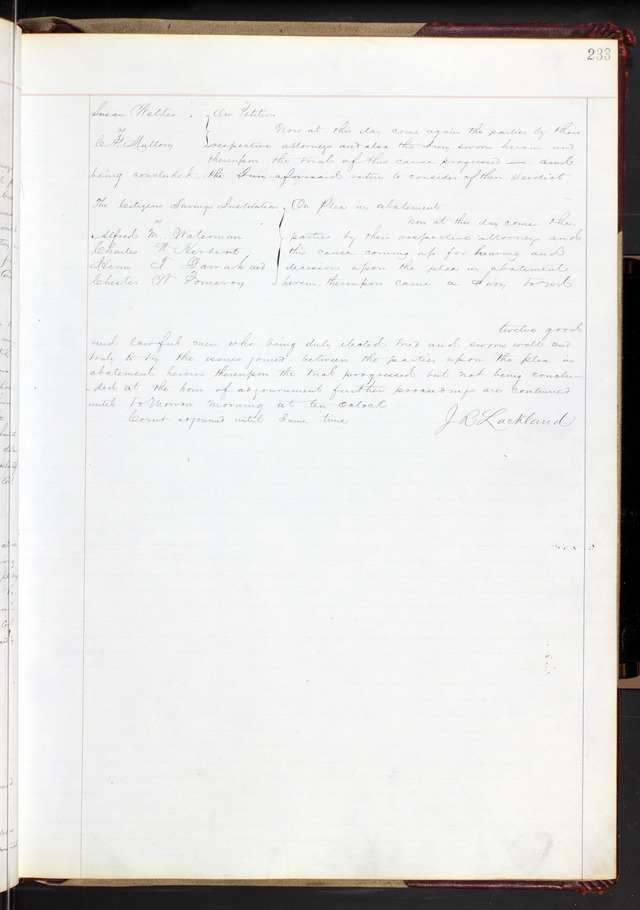 233
Susan Walter } On Petition
vs Now at this day come again the parties by their
C P Mallory respective attorneys and also the Jury sworn herein and
thereupon the trial of this cause progressed and
being concluded the Jury aforesaid retire to consider of their verdict
The Citizens Savings Institution } On Plea in abatement
vs Now at this day come the
Alfred M. Waterman parties by their respective attorneys and
Charles W Herbert this cause coming up for hearing and
Henry T Darrah and decision upon the plea in abatement
Chester W Pomeroy herein thereupon came a Jury to wit
twelve good
and lawful men who being duly elected tried and sworn well and
truly to try the issues joined between the parties upon the plea in
abatement herein thereupon the trial progressed but not being conclu-
-ded at the hour of adjournment further proceedings are continued
until To Morrow Morning at ten Oclock
Court adjourned until Same time J R Lackland